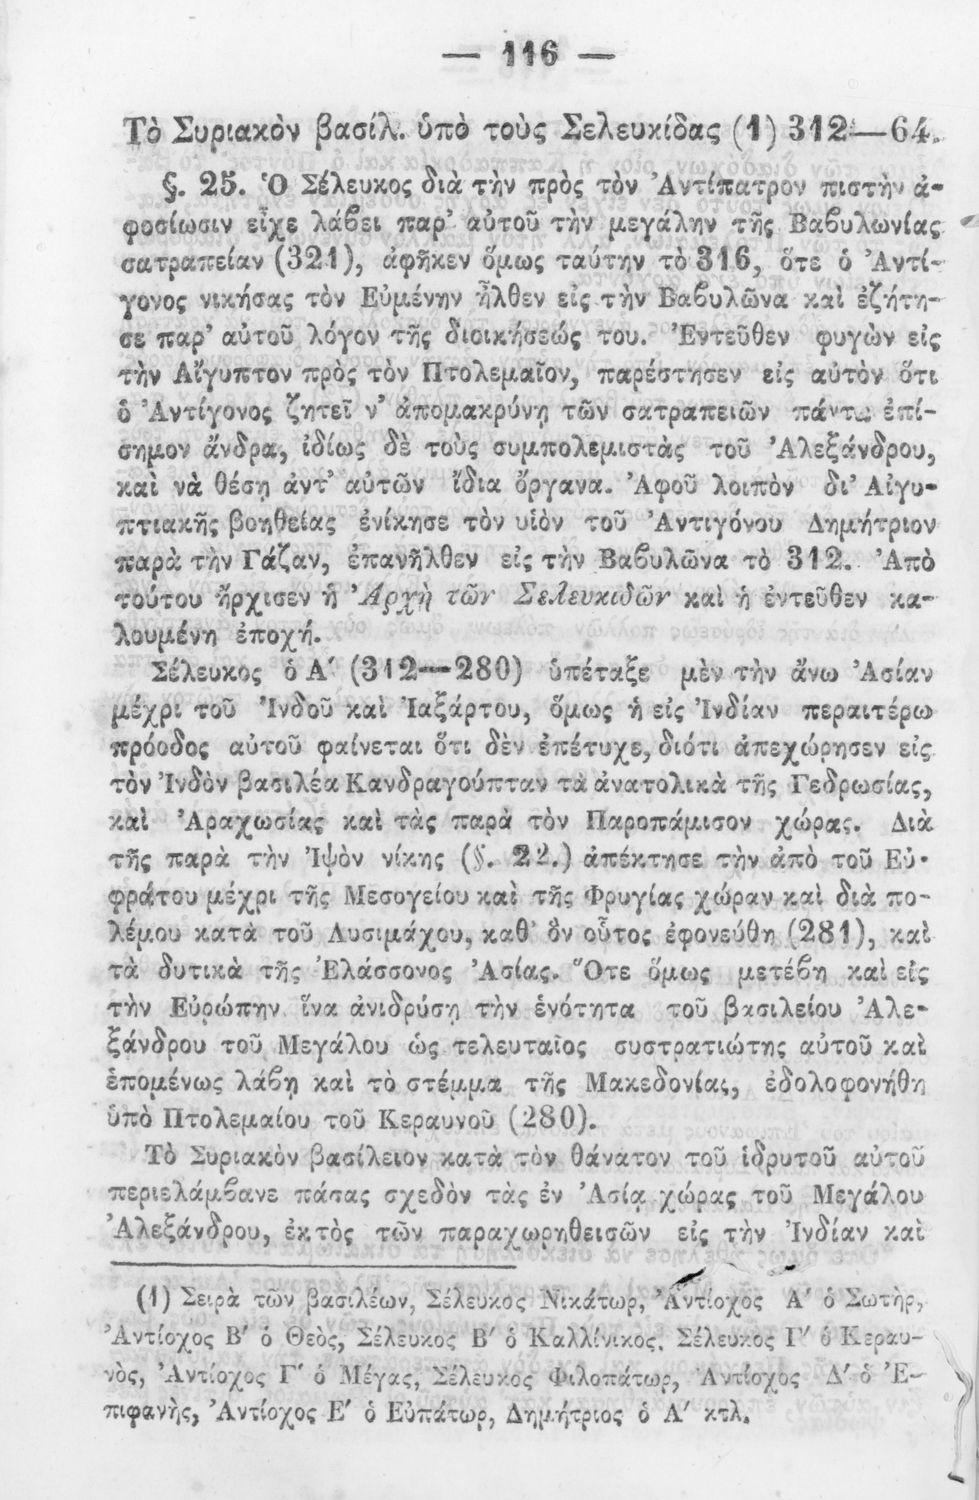 — 116 —
Τὸ Συριακὸν βασίλ. ὑπὸ τοὺς Σελευκίδας (1) 312—64.
§. 25. Ὁ Σέλευκος διὰ τὴν πρὸς τὸν Ἀντίπατρον πιστὴν ἀ-
φοσίωσιν εἶχε λάβει παρ’ αὐτοῦ τὴν μεγάλην τῆς Βαβυλωνίας
σατραπείαν (321), ἀφῆκεν ὅμως ταύτην τὸ 316, ὅτε ὁ Ἀντί-
γονος νικήσας τὸν Εὐμένην ἦλθεν εἰς τὴν Βαβυλῶνα καὶ ἐζήτη-
σε παρ’ αὐτοῦ λόγον τῆς διοικήσεώς του. Ἐντεῦθεν φυγὼν εἰς
τὴν Αἴγυπτον πρὸς τὸν Πτολεμαῖον, παρέστησεν εἰς αὐτὸν ὅτι
ὁ Ἀντίγονος ζητεῖ ν’ ἀπομακρύνῃ τῶν σατραπειῶν πάντα ἐπί-
σημον ἄνδρα, ἰδίως δὲ τοὺς συμπολεμιστὰς τοῦ Ἀλεξάνδρου,
καὶ νὰ θέσῃ ἀντ’ αὐτῶν ἴδια ὄργανα. Ἀφοῦ λοιπὸν δι’ Αἰγυ-
πτιακῆς βοηθείας ἐνίκησε τὸν υἱὸν τοῦ Ἀντιγόνου Δημήτριον
παρὰ τὴν Γάζαν, ἐπανῆλθεν εἰς τὴν Βαβυλῶνα τὸ 312. Ἀπὸ
τούτου ἤρχισεν ἡ Ἀρχὴ τῶν Σελευκιδῶν καὶ ἡ ἐντεῦθεν κα-
λουμένη ἐποχή.
Σέλευκος ὁ Α′ (312—280) ὑπέταξε μὲν τὴν ἄνω Ἀσίαν
μέχρι τοῦ Ἰνδοῦ καὶ Ἰαξάρτου, ὅμως ἡ εἰς Ἰνδίαν περαιτέρω
πρόοδος αὐτοῦ φαίνεται ὅτι δὲν ἐπέτυχε, διότι ἀπεχώρησεν εἰς
τὸν Ἰνδὸν βασιλέα Κανδραγούπταν τὰ ἀνατολικὰ τῆς Γεδρωσίας,
καὶ Ἀραχωσίας καὶ τὰς παρὰ τὸν Παροπάμισον χώρας. Διὰ
τῆς παρὰ τὴν Ἰψὸν νίκης (§. 22.) ἀπέκτησε τὴν ἀπὸ τοῦ Εὐ-
φράτου μέχρι τῆς Μεσογείου καὶ τῆς Φρυγίας χώραν καὶ διὰ πο-
λέμου κατὰ τοῦ Λυσιμάχου, καθ’ ὃν οὗτος ἐφονεύθη (281), καὶ
τὰ δυτικὰ τῆς Ἐλάσσονος Ἀσίας. Ὅτε ὅμως μετέβη καὶ εἰς
τὴν Εὐρώπην ἵνα ἀνιδρύσῃ τὴν ἑνότητα τοῦ βασιλείου Ἀλε-
ξάνδρου τοῦ Μεγάλου ὡς τελευταῖος συστρατιώτης αὐτοῦ καὶ
ἑπομένως λάβῃ καὶ τὸ στέμμα τῆς Μακεδονίας, ἐδολοφονήθη
ὑπὸ Πτολεμαίου τοῦ Κεραυνοῦ (280).
Τὸ Συριακὸν βασίλειον κατὰ τὸν θάνατον τοῦ ἱδρυτοῦ αὐτοῦ
περιελάμβανε πάσας σχεδὸν τὰς ἐν Ἀσίᾳ χώρας τοῦ Μεγάλου
Ἀλεξάνδρου, ἐκτὸς τῶν παραχωρηθεισῶν εἰς τὴν Ἰνδίαν καὶ
(1) Σειρὰ τῶν βασιλέων, Σέλευκος Νικάτωρ, Ἀντίοχος Α′ ὁ Σωτὴρ,
Ἀντίοχος Β′ ὁ Θεὸς, Σέλευκος Β′ ὁ Καλλίνικος, Σέλευκος Γ′ ὁ Κεραυ-
νὸς, Ἀντίοχος Γ′ ὁ Μέγας, Σέλευκος Φιλοπάτωρ, Ἀντίοχος Δ′ ὁ Ἐ-
πιφανὴς, Ἀντίοχος Ε′ ὁ Εὐπάτωρ, Δημήτριος ὁ Α′ κτλ.